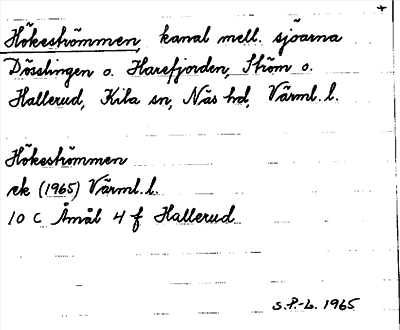 +
Hökeströmmen, kanal mell. sjöarna
Dösslingen o. Harefjorden, Ström o.
Hallerud, Kila sn, Näs hd, Värml. l.
Hökeströmmen
ek (1965) Värml. l.
10 C Åmål 4 f Hallerud
S.P.-L. 1965